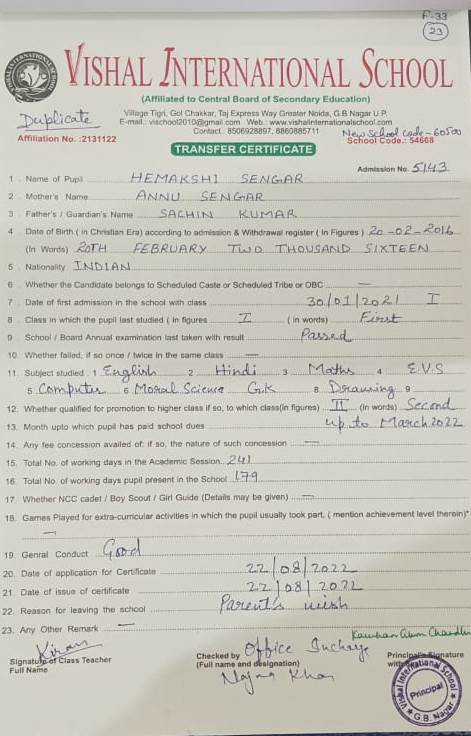 F-33
23
VISHAL INTERNATIONAL SCHOOL
(Affiliated to Central Board of Secondary Education)
Village Tigri, Gol Chakkar, Taj Express Way Greater Noida, G.B Nagar U.P.
Duplicate E-mail.: vischool2010@gmail.com Web.: www.vishalinternationalschool.com
Contact.: 8506928897, 8860885711 New School code - 60500
Affiliation No. :2131122 School Code.: 54668
TRANSFER CERTIFICATE
Admission No. 5143
1 . Name of Pupil HEMAKSHI SENGAR
2 . Mother's Name ANNU SENGAR
3 . Father's / Guardian's Name SACHIN KUMAR
4 . Date of Birth ( in Christian Era) according to admission & Withdrawal register ( In Figures ) 20-02-2016
(In Words) 20TH FEBRUARY TWO THOUSAND SIXTEEN
5 . Nationality INDIAN
6 . Whether the Candidate belongs to Scheduled Caste or Scheduled Tribe or OBC —
7 . Date of first admission in the school with class 30/01/2021 I
8 . Class in which the pupil last studied ( in figures I ( in words) First
9 . School / Board Annual examination last taken with result Passed
10. Whether failed, if so once / twice in the same class —
11. Subject studied 1 English 2 Hindi 3 Maths 4 E.V.S
5 Computer 6 Moral Science G.K 8 Drawing 9
12. Whether qualified for promotion to higher class if so, to which class(in figures) II (in words) Second
13. Month upto which pupil has paid school dues up to March 2022
14. Any fee concession availed of: if so, the nature of such concession —
15. Total No. of working days in the Academic Session. 241
16. Total No. of working days pupil present in the School 179
17. Whether NCC cadet / Boy Scout / Girl Guide (Details may be given) —
18. Games Played for extra-curricular activities in which the pupil usually took part, ( mention achievement level therein)*
—
19. Genral Conduct Good
20. Date of application for Certificate 22/08/2022
21. Date of issue of certificate 22/08/2022
22. Reason for leaving the school Parent's wish
23. Any Other Remark —
Kiran
Signature of Class Teacher
Full Name
Checked by Office Incharge
(Full name and designation)
Khan
Principal's Signature
with
Vishal International School
Principal
G.B. Nagar